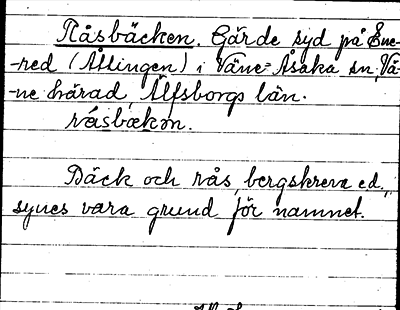 Råsbäcken. Gärde syd på Ene-
-red (Åttingen) i Väne-Åsaka sn, Vä-
-ne härad, Älfsborgs län.
råsbækən.
Bäck och rås, bergskreva e.d.,
synes vara grund för namnet.